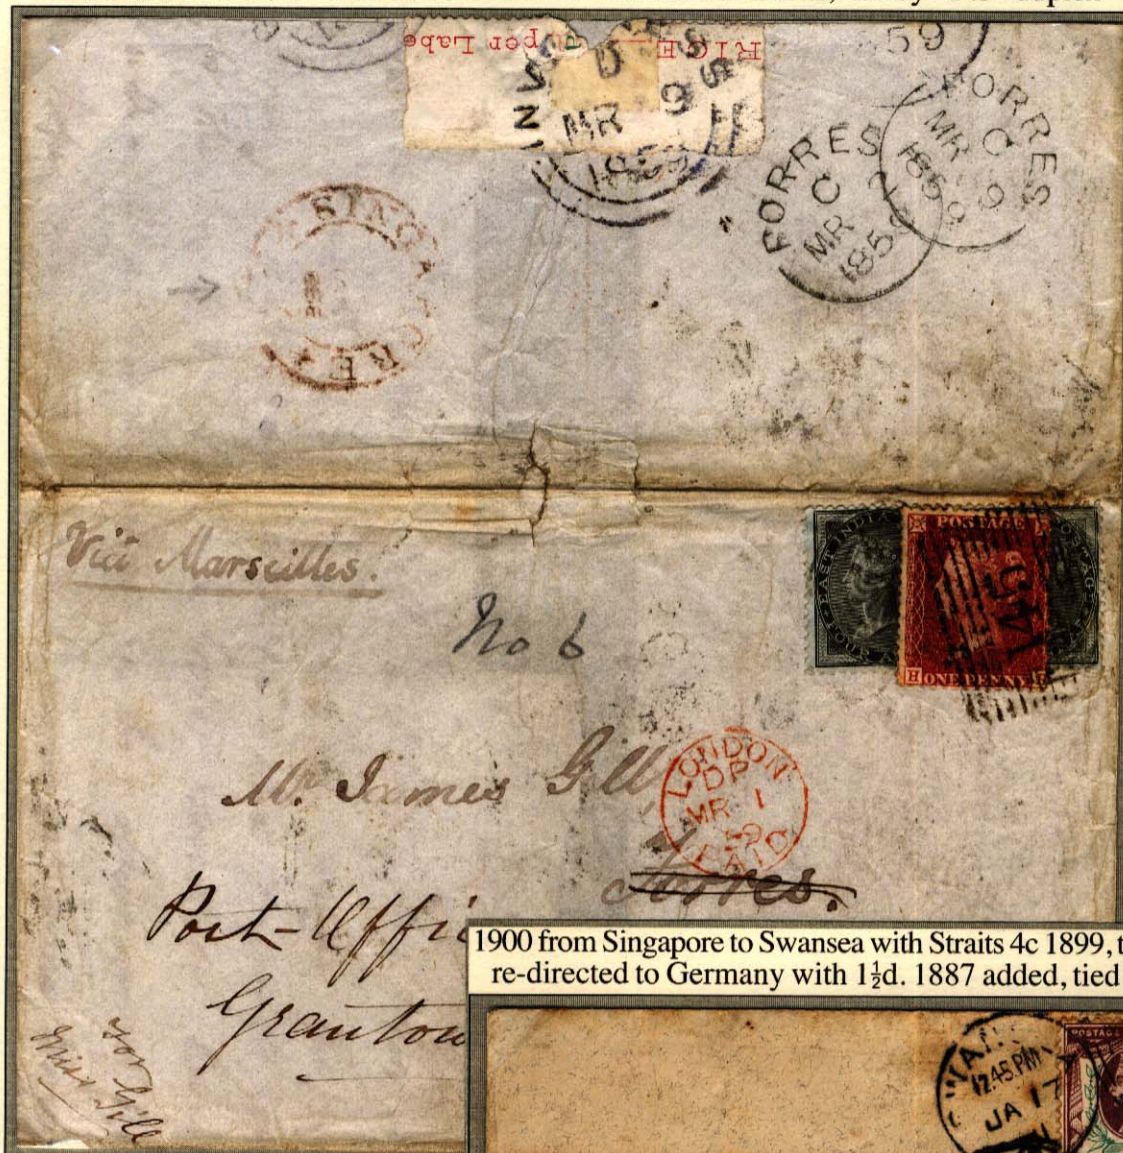 RICE per Labe
59
INV
D
MR 9
1859
FORRES
C
MR 2
1859
FORRES
C
MR 9
1859
SINGA
ORE
Viâ Marseilles.
No 6
EAST INDIA
POSTAGE
POSTAGE
145
H ONE PENNY
Mr. James Gill,
LONDON
DP
MR 1
59
PAID
Forres.
Post-Offi
Grantow
For
Miss Gill
1900 from Singapore to Swansea with Straits 4c 1899, t
re-directed to Germany with 1½d. 1887 added, tied
SWANS
12.45.PM
JA 17
POSTAGE